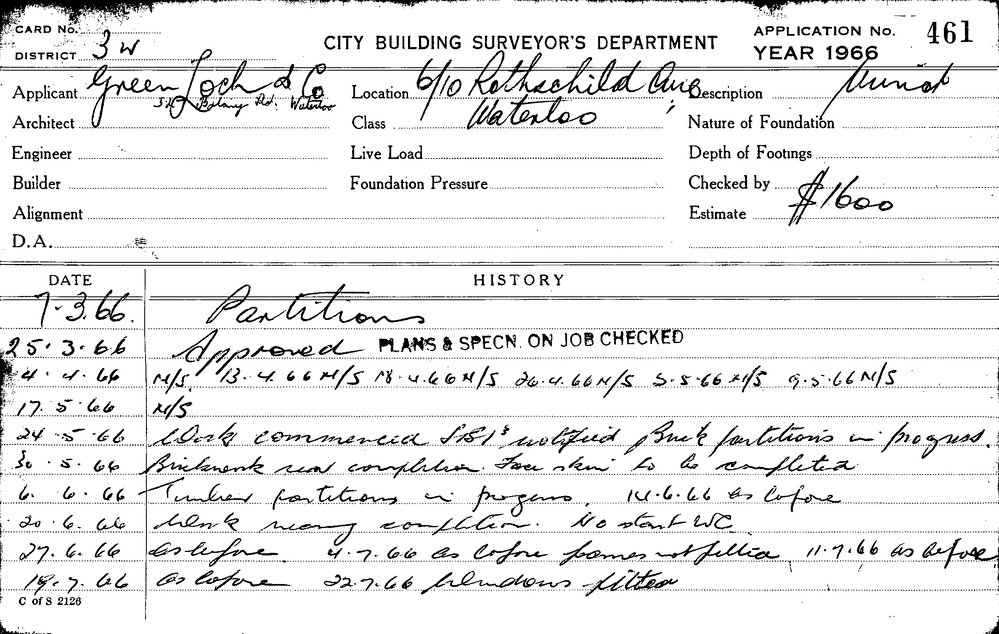 CARD No.
DISTRICT 3 W
CITY BUILDING SURVEYOR'S DEPARTMENT
APPLICATION No. 461
YEAR 1966
Applicant Green Loch & Co
Botany Rd; Waterloo
Location 6/10 Rothschild Ave
Waterloo
Description
Architect
Class
Nature of Foundation
Engineer
Live Load
Depth of Footings
Builder
Foundation Pressure
Checked by
Alignment
Estimate $1600
D.A.
DATE HISTORY
7-3.66. Partitions
25.3.66 Approved PLANS & SPECN. ON JOB CHECKED
4.4.66 N/S, 13.4.66 N/S 18.4.66 N/S 26.4.66 N/S 3.5.66 N/S 9.5.66 N/S
17.5.66 N/S
24.5.66 Work commenced notified Brick partitions in progress.
30.5.66 Brickwork near completion. Face skin to be completed
6.6.66 Timber partitions in progress, 14.6.66 as before
20.6.66 Work nearing completion. No start WC
27.6.66 as before 4.7.66 as before frames not fitted 11.7.66 as before
19.7.66 as before 22.7.66 Windows fitted
C of S 2126